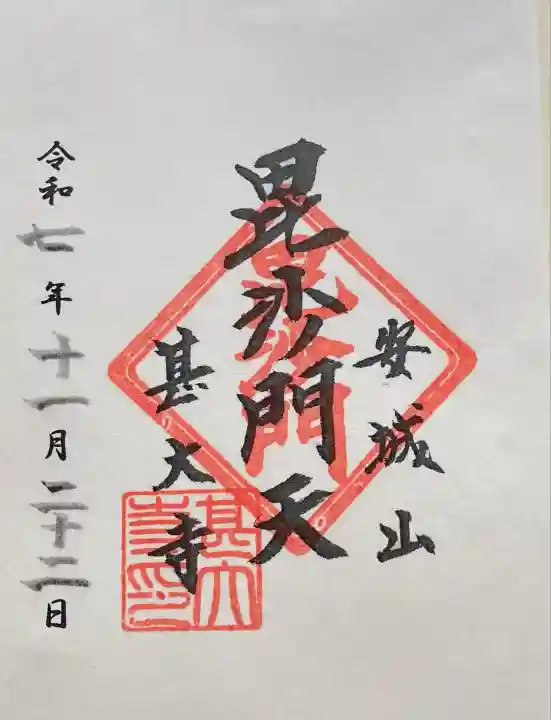 安城山
毘沙門天
甚大寺
令和七年十一月二十二日
毘沙門
甚大寺印